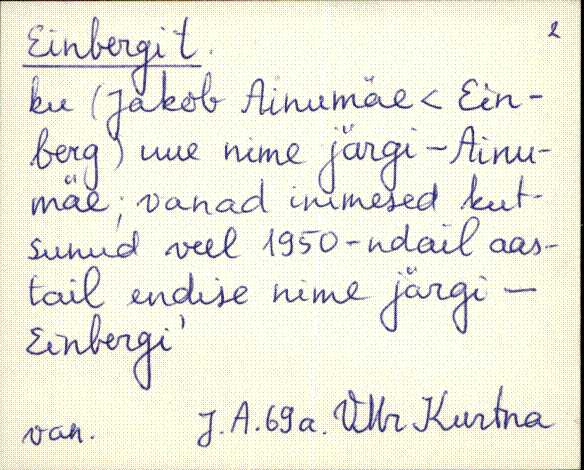 Einbergi t. 2
ku (Jakob Ainumäe < Ein-
berg) uue nime järgi - Ainu-
mäe; vanad inimesed kut-
sunud veel 1950-ndail aas-
tail endise nime järgi —
Einbergi'
van. J. A. 69 a. VMr Kurtna